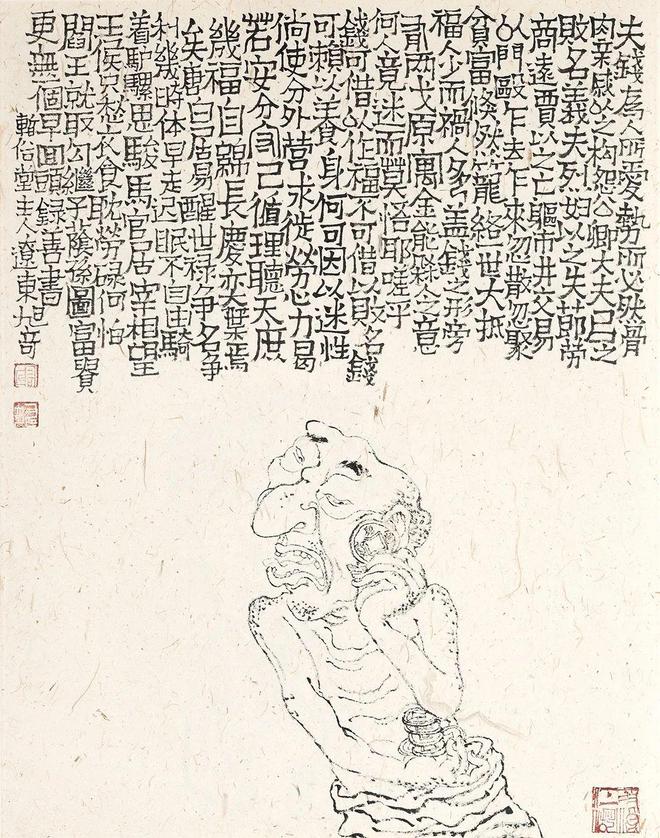 夫錢為人所愛勢所必然骨
肉亲戚以之构怨公卿大夫以之
敗名義夫烈妇以之失節劳
商遠賈以之亡軀市井交易
以鬥毆乍去乍來忽散忽聚
貪富倏然籠絡一世大抵
福人少而禍人多盖錢之形旁
有兩戈原寓金能殺人之意
何人竟迷而莫悟耶嗟乎
錢可借以作福不可借以敗名錢
可賴以養身何可因以迷性
倘使分外营求徒勞心力曷
若安分守己循理聽天庶
幾福自錦長慶亦葉焉
矣唐白居易醒世禄争名争
利幾時休早走迟眠不自由騎
着馿騾思駿馬官居宰相望
王侯只愁衣食耽劳碌何怕
閻王就取勾繼子蔭孫圖富貴
更無一個早回頭録善書
堂主人遼東九音